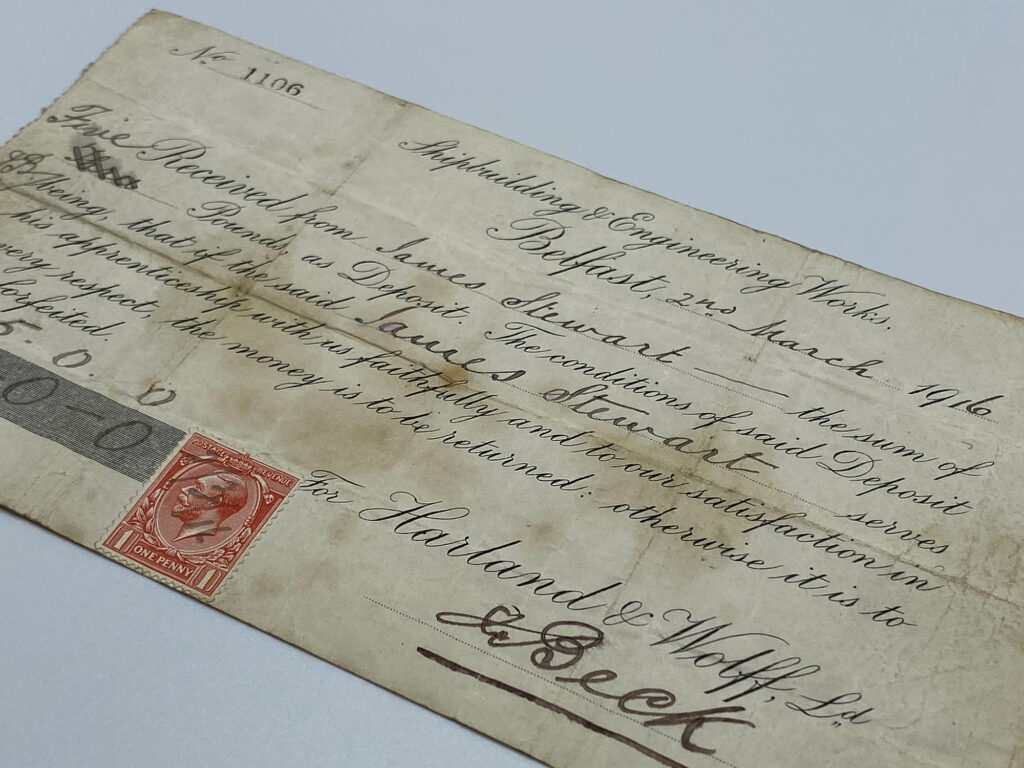 No 1106
Shipbuilding & Engineering Works,
Belfast, 2nd March 1916
Received from James Stewart — the sum of
Five Pounds as Deposit. The conditions of said Deposit
being, that if the said James Stewart serves
his apprenticeship with us faithfully and to our satisfaction in
very respect, the money is to be returned: otherwise it is to
forfeited.
5-0.0
0-0
For Harland & Wolff, Ld
Beck
POSTAGE REVENUE
1 ONE PENNY 1